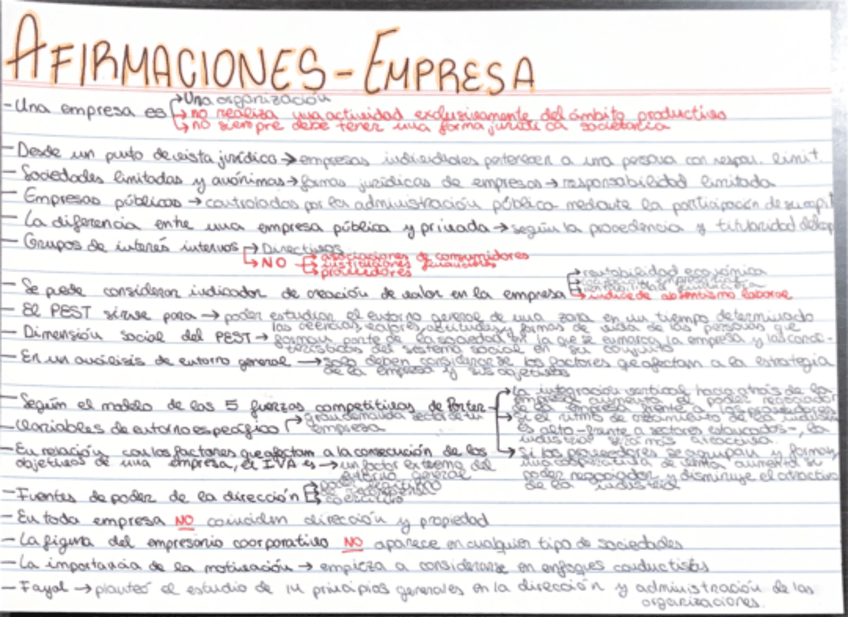 AFIRMACIONES - EMPRESA
- Una empresa es → Una organización
→ no realiza una actividad exclusivamente del ámbito productivo
→ no siempre debe tener una forma jurídica societaria
- Desde un punto de vista jurídico → empresas individuales pertenecen a una persona con respon. limit.
- Sociedades limitadas y anónimas → formas jurídicas de empresas → responsabilidad limitada
- Empresas públicas → controladas por la administración pública mediante la participación de su capit
- La diferencia entre una empresa pública y privada → según la procedencia y titularidad del cap
- Grupos de interés internos → Directivos
→ NO → asociaciones de consumidores
→ instituciones financieras
→ proveedores
- Se puede considerar indicador de creación de valor en la empresa → rentabilidad económica
→ índice de absentismo laboral
- El PEST sirve para → poder estudiar el entorno general de una zona en un tiempo determinado
- Dimensión social del PEST → las creencias, valores, actitudes y formas de vida de las personas que
forman parte de la sociedad en la que se enmarca la empresa y las carac-
terísticas del sistema social en su conjunto
- En un análisis de entorno general → solo deben considerarse los factores que afectan a la estrategia
de la empresa y sus objetivos
- Según el modelo de las 5 fuerzas competitivas de Porter → La integración vertical hacia atrás de la
empresa aumenta el poder negociador
de la empresa frente a los proveedores
→ Si el ritmo de crecimiento de la industria
es alto -frente a sectores estancados-, la
industria será más atractiva.
→ Si los proveedores se agrupan y forman
una cooperativa de venta aumenta su
poder negociador y disminuye el atractivo
de la industria
- Variables de entorno específico → empresa
- En relación con los factores que afectan a la consecución de los
objetivos de una empresa, el IVA es → un factor externo del
entorno general
- Fuentes de poder de la dirección → coercitivo
- En toda empresa NO coinciden dirección y propiedad
- La figura del empresario coorporativo NO aparece en cualquier tipo de sociedades
- La importancia de la motivación → empieza a considerarse en enfoques conductistas
- Fayol → planteó el estudio de 14 principios generales en la dirección y administración de las
organizaciones.